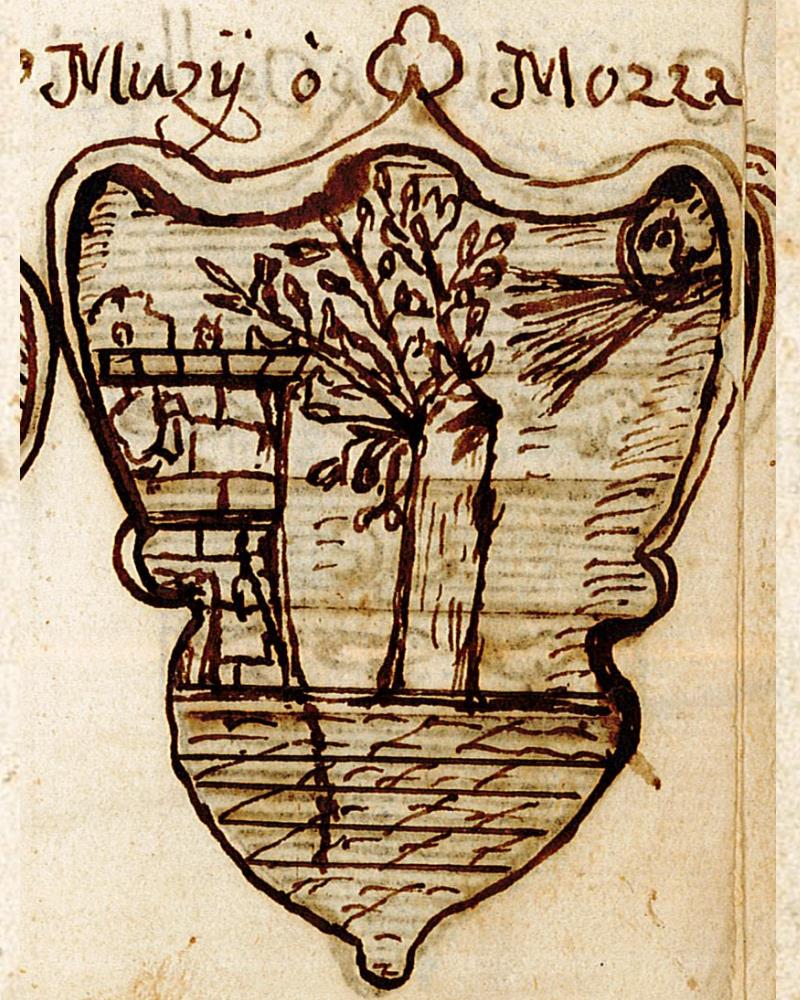 Muzÿ ò Mozza